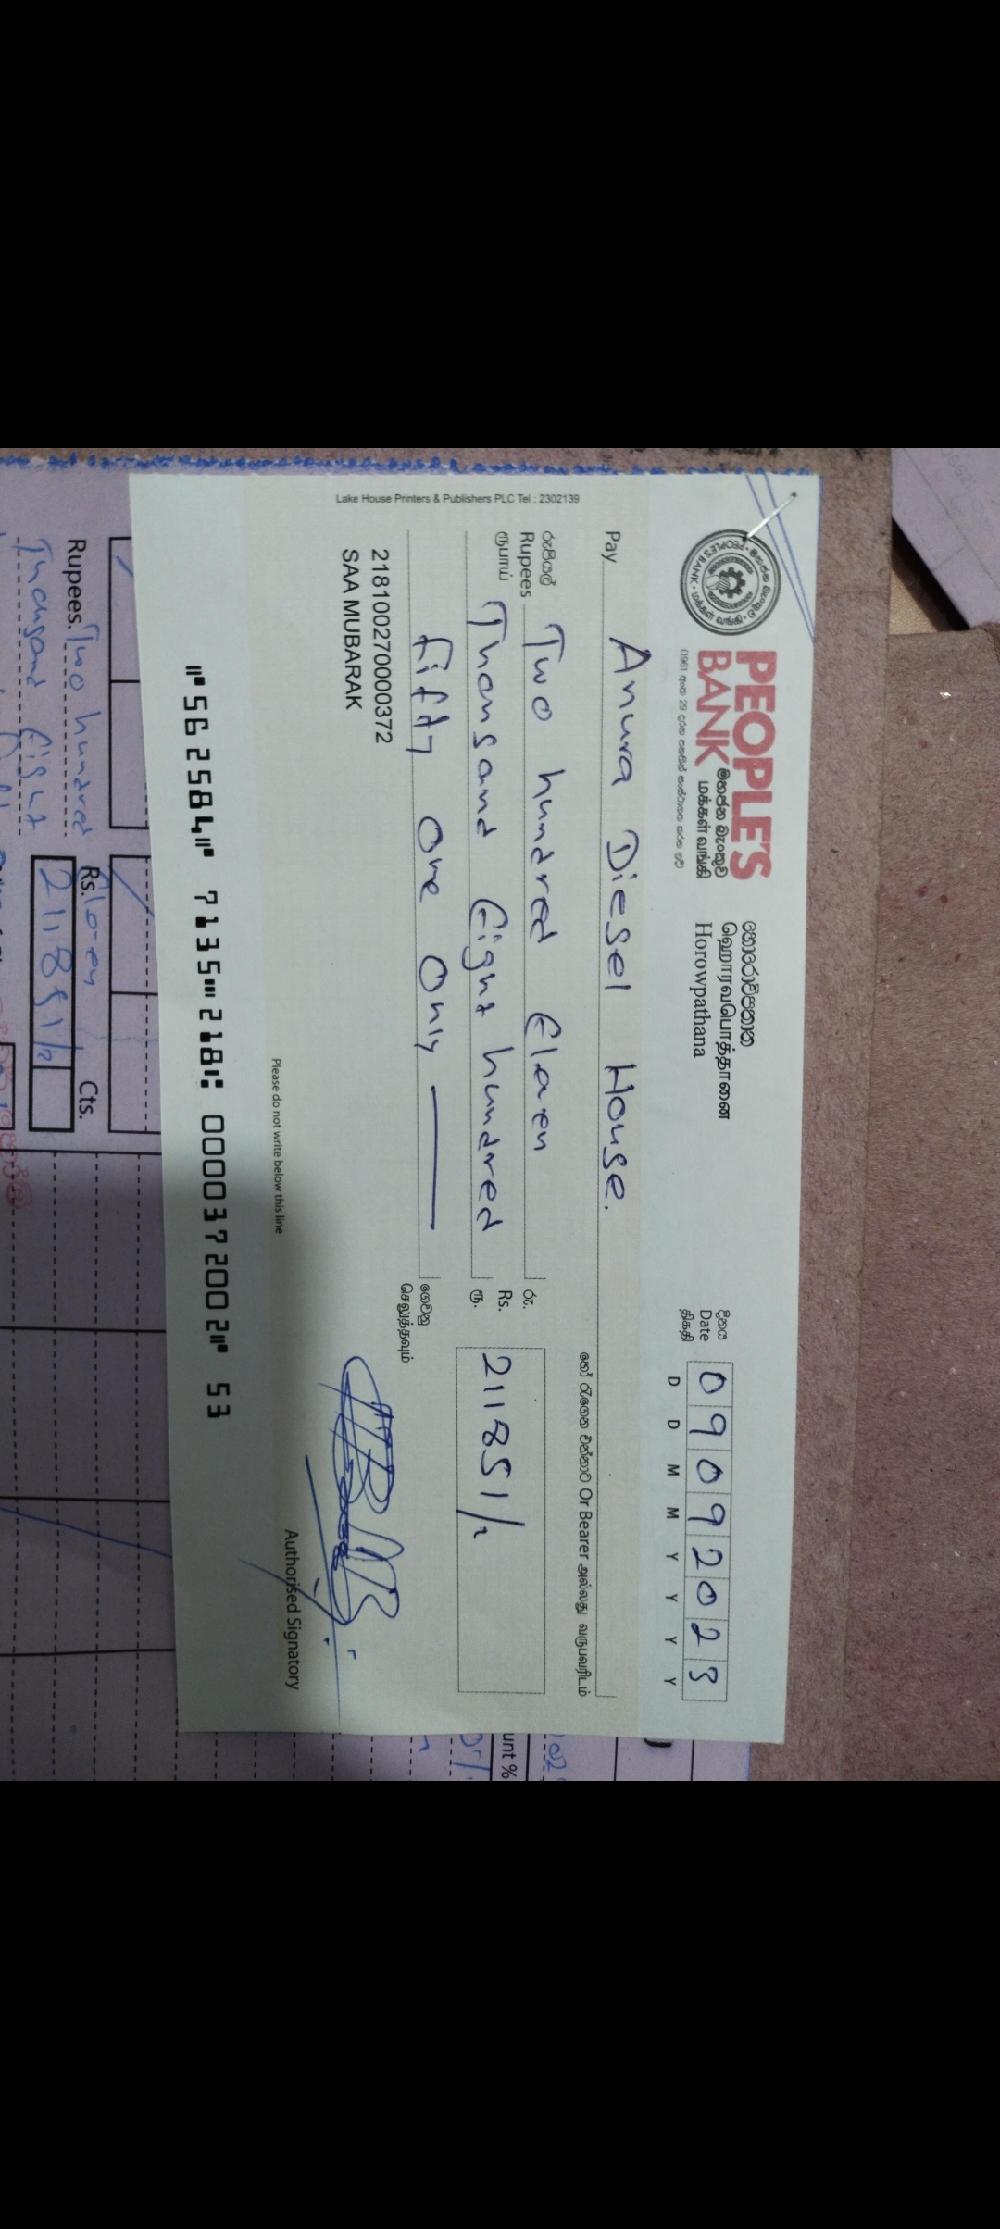 PEOPLE'S
BANK මහජන බැංකුව
மக்கள் வங்கி
හොරොව්පතාන
ஹொரவபொத்தானை
Horowpathana
දිනය
Date
திகதி
0 9 0 9 2 0 2 3
D D M M Y Y Y Y
Pay Anura Diesel House.
හෝ රැගෙන එන්නාට Or Bearer அல்லது வருபவரிடம்
රුපියල්
Rupees Two hundred Elaven
ரூபாய் Thousand Eight hundred
fifty one Only
රු.
Rs. 211851/
ரூ.
ගෙවනු
செலுத்தவும்
218100270000372
SAA MUBARAK
Authorised Signatory
Please do not write below this line
⑈562584⑈ 7135⑉218⑆ 0000372002⑈ 53
Lake House Printers & Publishers PLC Tel : 2302139
Rupees. Two hundred
Thousand Eight
Rs. Cts.
211851/
unt %